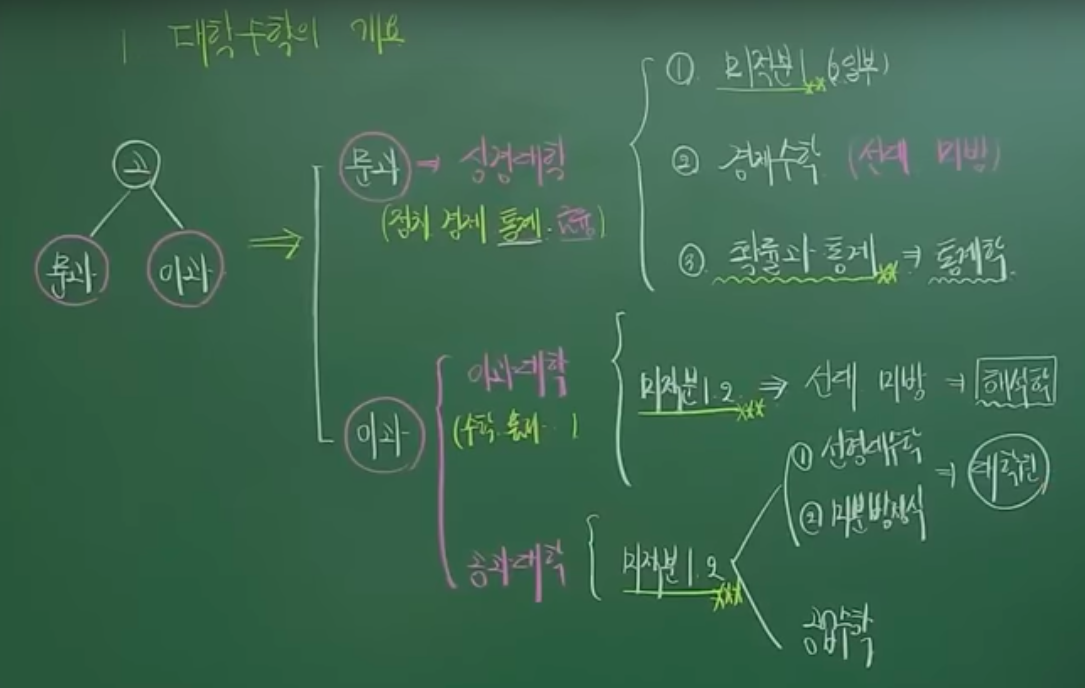 1 대학수학의 개요
고
문과 이과
⇒
문과 → 상경대학
(정치 경제 통계· 금융)
① 미적분1 ** (일부)
② 경제수학 (선대 미방)
③ 확률과 통계 ** ⇒ 통계학
이과
이과대학
(수학. 통계 ‥ )
미적분1.2 *** ⇒ 선대 미방 ⇒ 해석학
공과대학
미적분1.2 ***
① 선형대수학
② 미분방정식
⇒ 대학원
공업수학